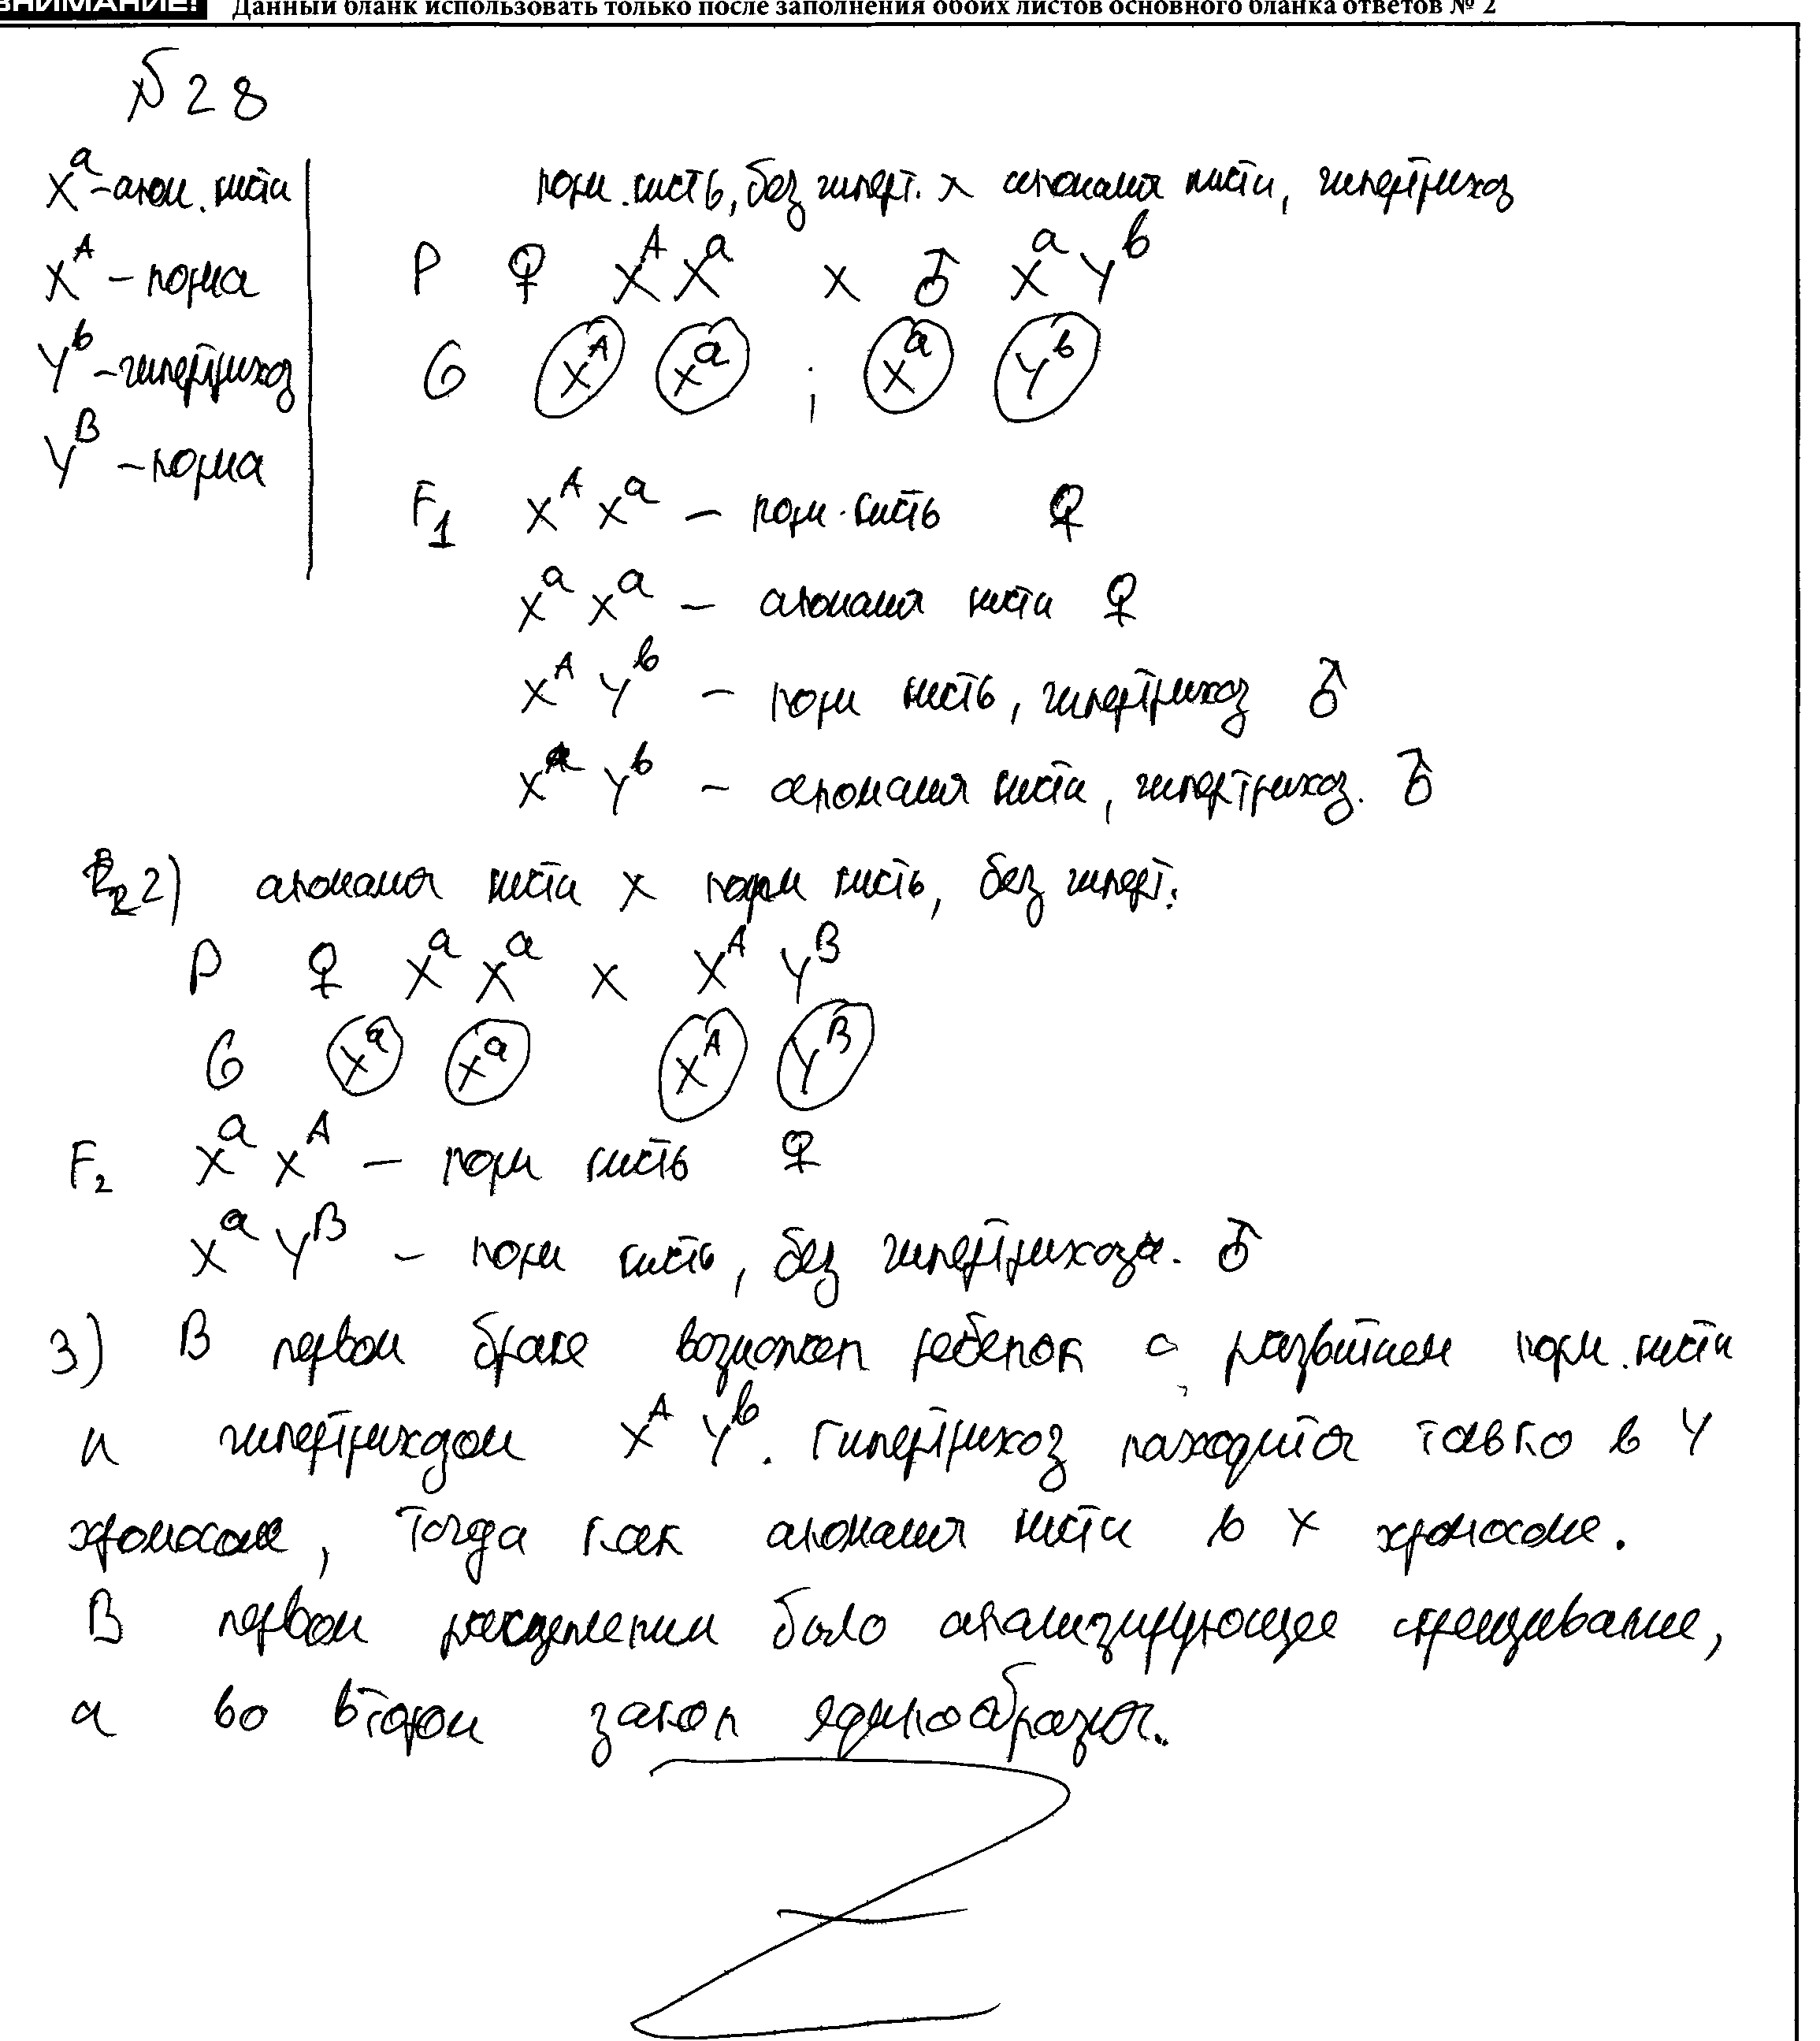 ВНИМАНИЕ! Данный бланк использовать только после заполнения обоих листов основного бланка ответов № 2
№ 28
X^a – аном. кисти
X^A – норма
Y^b – гипертрихоз
Y^B – норма
норм. кисть, без гиперт. x аномалия кисти, гипертрихоз
P ♀ X^A X^a x ♂ X^a Y^b
G X^A X^a ; X^a Y^b
F1 X^A X^a – норм. кисть ♀
X^a X^a – аномалия кисти ♀
X^A Y^b – норм кисть, гипертрихоз ♂
X^a Y^b – аномалия кисти, гипертрихоз. ♂
2) аномалия кисти x норм кисть, без гиперт.
P ♀ X^a X^a x X^A Y^B
G X^a X^a X^A Y^B
F2 X^a X^A – норм кисть ♀
X^a Y^B – норм кисть, без гипертрихоза. ♂
3) В первом браке возможен ребенок с развитием норм. кисти
и гипертрихозом X^A Y^b. Гипертрихоз находится только в Y
хромосоме, тогда как аномалия кисти в X хромосоме.
В первом расщеплении было анализирующее скрещивание,
а во втором закон единообразия.
Z